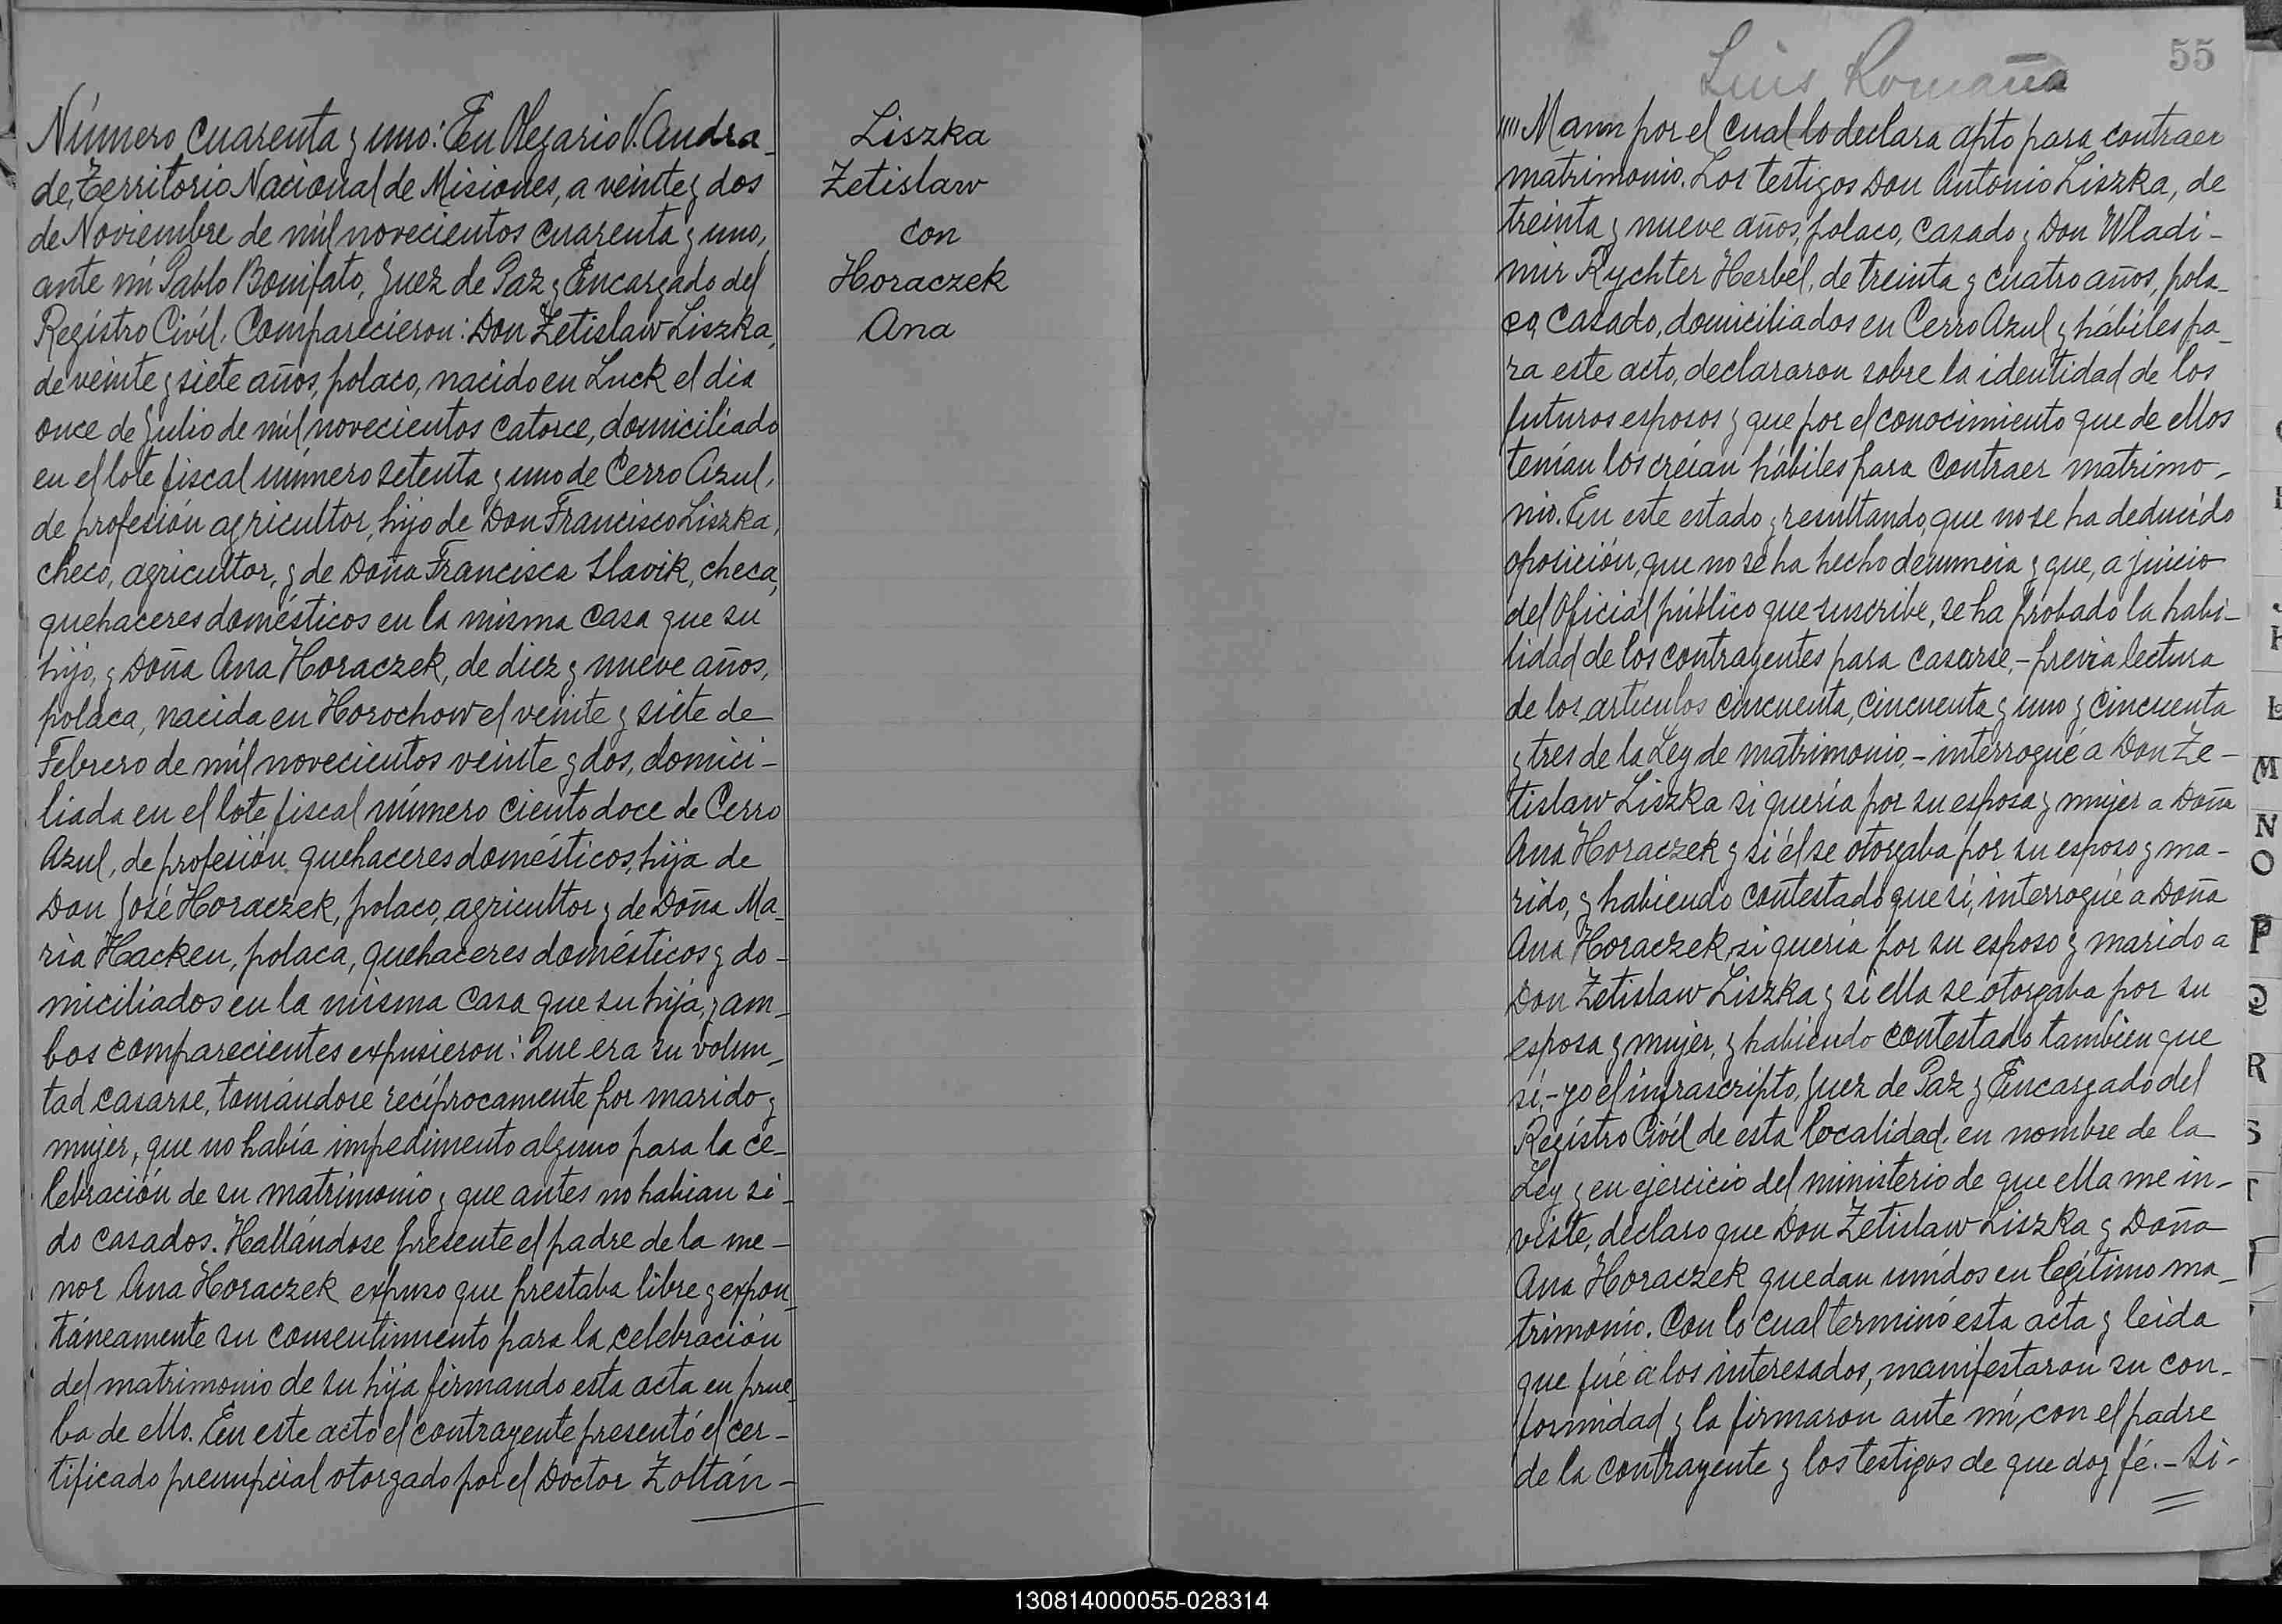 Número cuarenta y uno: En Olegario V. Andra-
de, Territorio Nacional de Misiones, a veinte y dos
de Noviembre de mil novecientos cuarenta y uno,
ante mi Pablo Bonifato, Juez de Paz y Encargado del
Registro Civil. Comparecieron: Don Zetislaw Liszka,
de veinte y siete años, polaco, nacido en Luck el dia
once de Julio de mil novecientos catorce, domiciliado
en el lote fiscal número setenta y uno de Cerro Azul,
de profesión agricultor, hijo de Don Francisco Liszka,
checo, agricultor, y de Doña Francisca Slavik, checa,
quehaceres domésticos en la misma casa que su
hijo, y Doña Ana Horaczek, de diez y nueve años,
polaca, nacida en Horochow el veinte y siete de
Febrero de mil novecientos veinte y dos, domici-
liada en el lote fiscal número ciento doce de Cerro
Azul, de profesión quehaceres domésticos, hija de
Don José Horaczek, polaco, agricultor y de Doña Ma-
ria Hacken, polaca, quehaceres domésticos y do-
miciliados en la misma casa que su hija, y am-
bos comparecientes expusieron: Que era su volun-
tad casarse, tomándose recíprocamente por marido y
mujer, que no había impedimento alguno para la ce-
lebración de su matrimonio y que antes no habian si-
do casados. Hallándose presente el padre de la me-
nor Ana Horaczek expuso que prestaba libre y expon-
táneamente su consentimiento para la celebración
del matrimonio de su hija firmando esta acta en prue-
ba de ello. En este acto el contrayente presentó el cer-
tificado prenupcial otorgado por el Doctor Zoltán-
Liszka
Zetislaw
con
Horaczek
Ana
55
Luis Romaña
"" Mann por el cual lo declara apto para contraer
matrimonio. Los testigos Don Antonio Liszka, de
treinta y nueve años, polaco, casado y Don Wladi-
mir Rychter Herbel, de treinta y cuatro años, pola-
co, casado, domiciliados en Cerro Azul y hábiles pa-
ra este acto, declararon sobre la identidad de los
futuros esposos y que por el conocimiento que de ellos
tenían los creían hábiles para contraer matrimo-
nio. En este estado y resultando, que no se ha deducido
oposición, que no se ha hecho denuncia y que, a juicio
del Oficial público que suscribe, se ha probado la habi-
lidad de los contrayentes para casarse,- previa lectura
de los artículos cincuenta, cincuenta y uno y cincuenta
y tres de la Ley de matrimonio,- interrogué a Don Ze-
tislaw Liszka si quería por su esposa y mujer a Doña
Ana Horaczek y si él se otorgaba por su esposo y ma-
rido, y habiendo contestado que sí, interrogué a Doña
Ana Horaczek si quería por su esposo y marido a
Don Zetislaw Liszka y si ella se otorgaba por su
esposa y mujer, y habiendo contestado tambien que
sí.- yo el infrascripto, Juez de Paz y Encargado del
Registro Civil de esta localidad, en nombre de la
Ley y en ejercicio del ministerio de que ella me in-
viste, declaro que Don Zetislaw Liszka y Doña
Ana Horaczek quedan unidos en legítimo ma-
trimonio. Con lo cual terminó esta acta y leida
que fué a los interesados, manifestaron su con-
formidad y la firmaron ante mí, con el padre
de la contrayente y los testigos de que doy fé.- Si-
L
M
N
O
P
Q
R
S
T
130814000055-028314